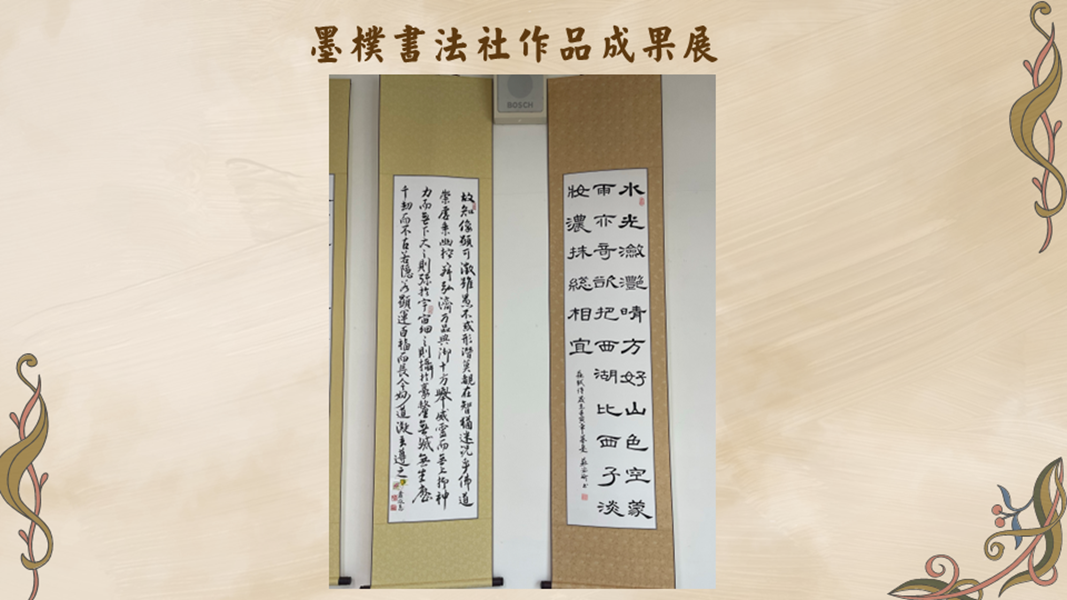 墨樸書法社作品成果展
BOSCH
水光瀲灩晴方好山色空蒙
雨亦奇欲把西湖比西子淡
妝濃抹總相宜
故知像顯可徵雖愚不惑形潛莫覩在智猶迷況乎佛道
崇虛乘幽控寂弘濟萬品典御十方舉威靈而無上抑神
力而無下大之則彌於宇宙細之則攝於豪釐無滅無生歷
千劫而不古若隱若顯運百福而長今妙道凝玄遵之